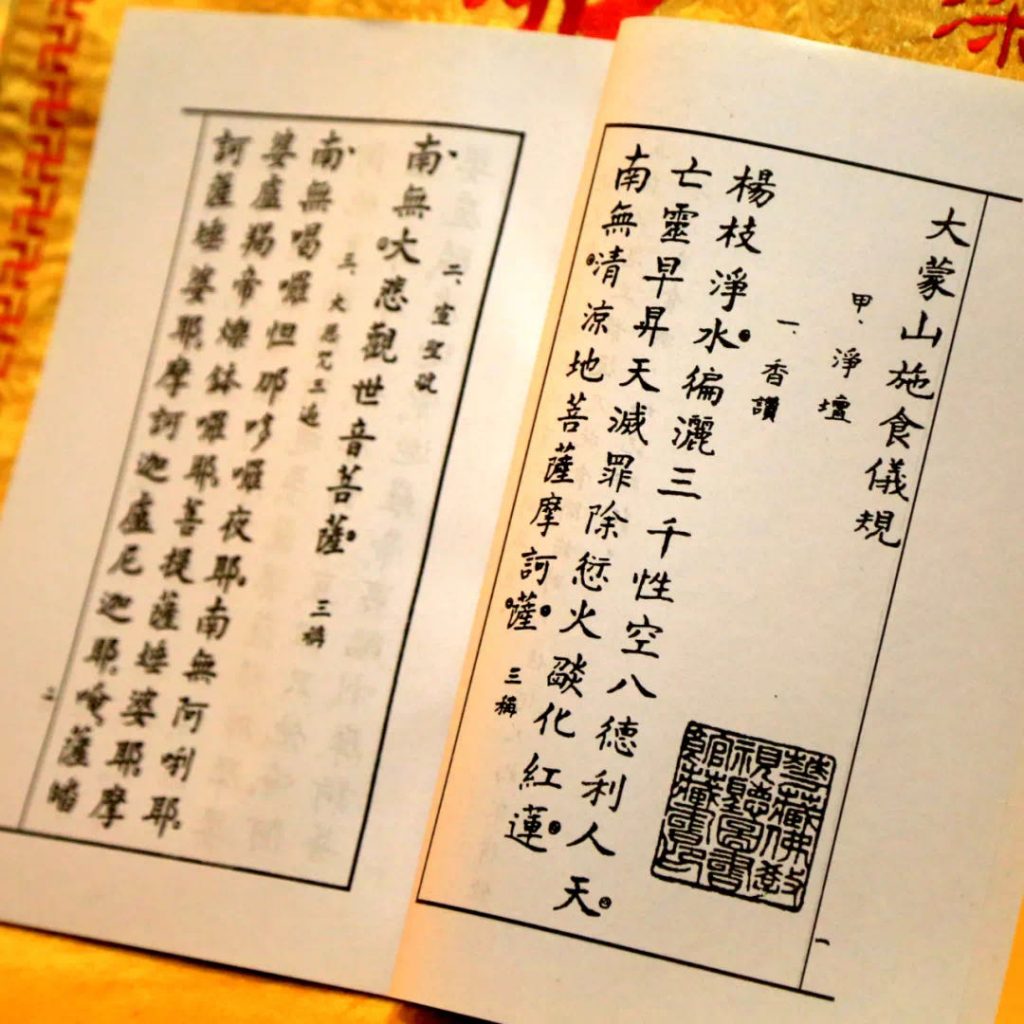 大蒙山施食儀規
甲、淨壇
一、香讚
楊枝淨水徧灑三千性空八德利人天
亡靈早昇天滅罪除愆火燄化紅蓮
南無清涼地菩薩摩訶薩 三稱
華藏佛教
視聽圖書
館藏書印
一
二、宣聖號
南無大悲觀世音菩薩 三稱
三、大悲咒三遍
南無喝囉怛那哆囉夜耶南無阿唎耶
婆盧羯帝爍鉢囉耶菩提薩埵婆耶摩
訶薩埵婆耶摩訶迦盧尼迦耶唵薩皤
二